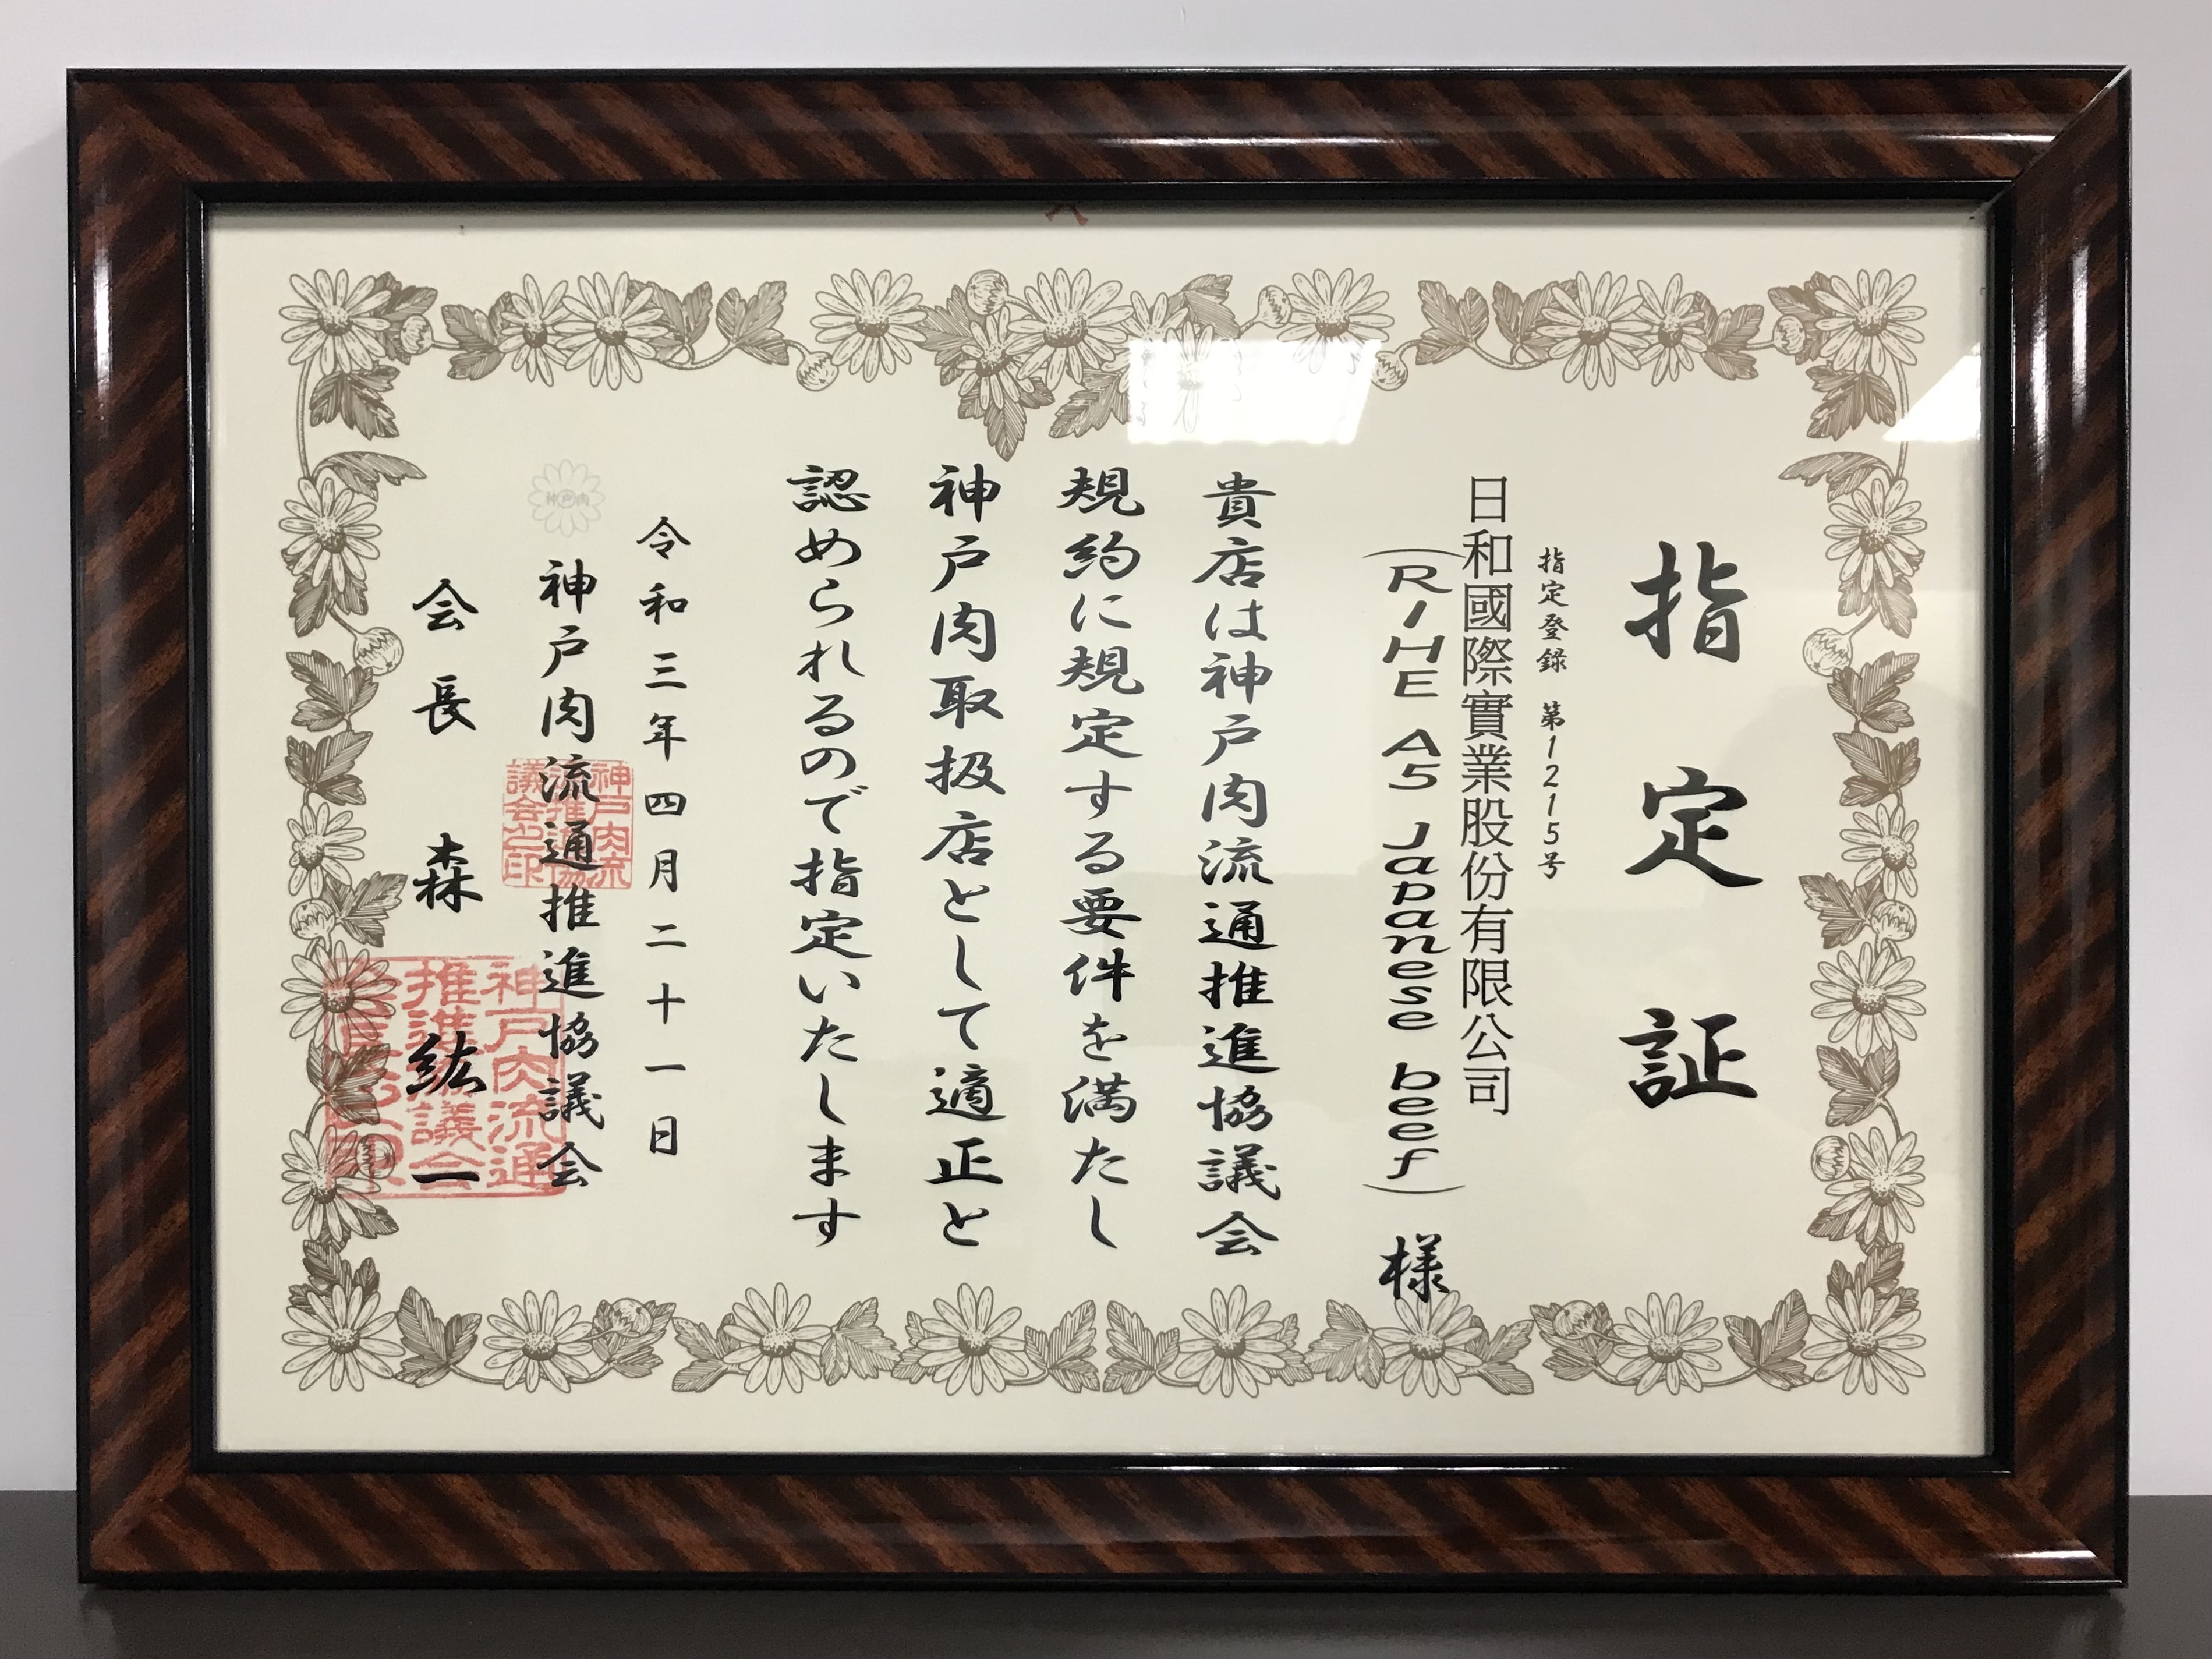 指定証
指定登録 第1215号
日和國際實業股份有限公司
(RIHE A5 Japanese beef) 様
貴店は神戸肉流通推進協議会
規約に規定する要件を満たし
神戸肉取扱店として適正と
認められるので指定いたします
令和三年四月二十一日
神戸肉
神戸肉流通推進協議会
会長 森 紘一